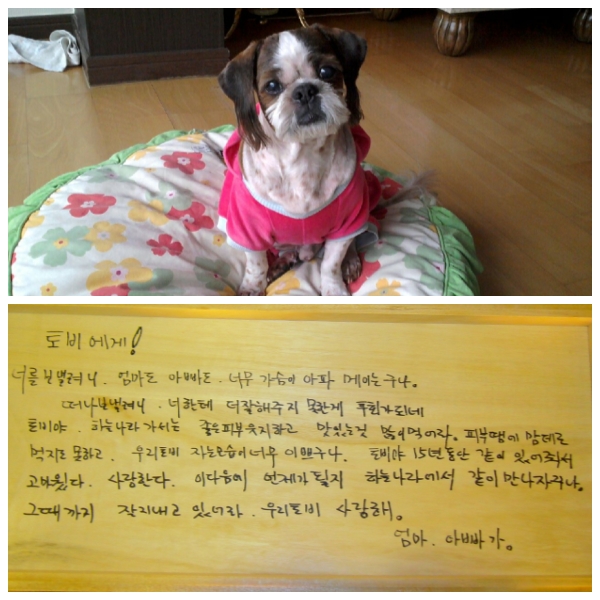 토비에게!
너를 보낼려니. 엄마도 아빠도. 너무 가슴이 아파 메이는구나.
떠나보낼려니. 너한테 더 잘해주지 못한게 후회가되네
토비야. 하늘나라가서는 좋은피부유지하고 맛있는것 많이먹어라. 피부땜에 맘대로
먹지도 못하고. 우리토비 자는모습이 너무 이쁘구나. 토비야 15년동안 같이 있어줘서
고마웠다. 사랑한다. 이다음에 언제가 될지 하늘나라에서 같이만나자구나.
그때까지 잘지내고 있너라. 우리토비 사랑해.
엄마. 아빠가.